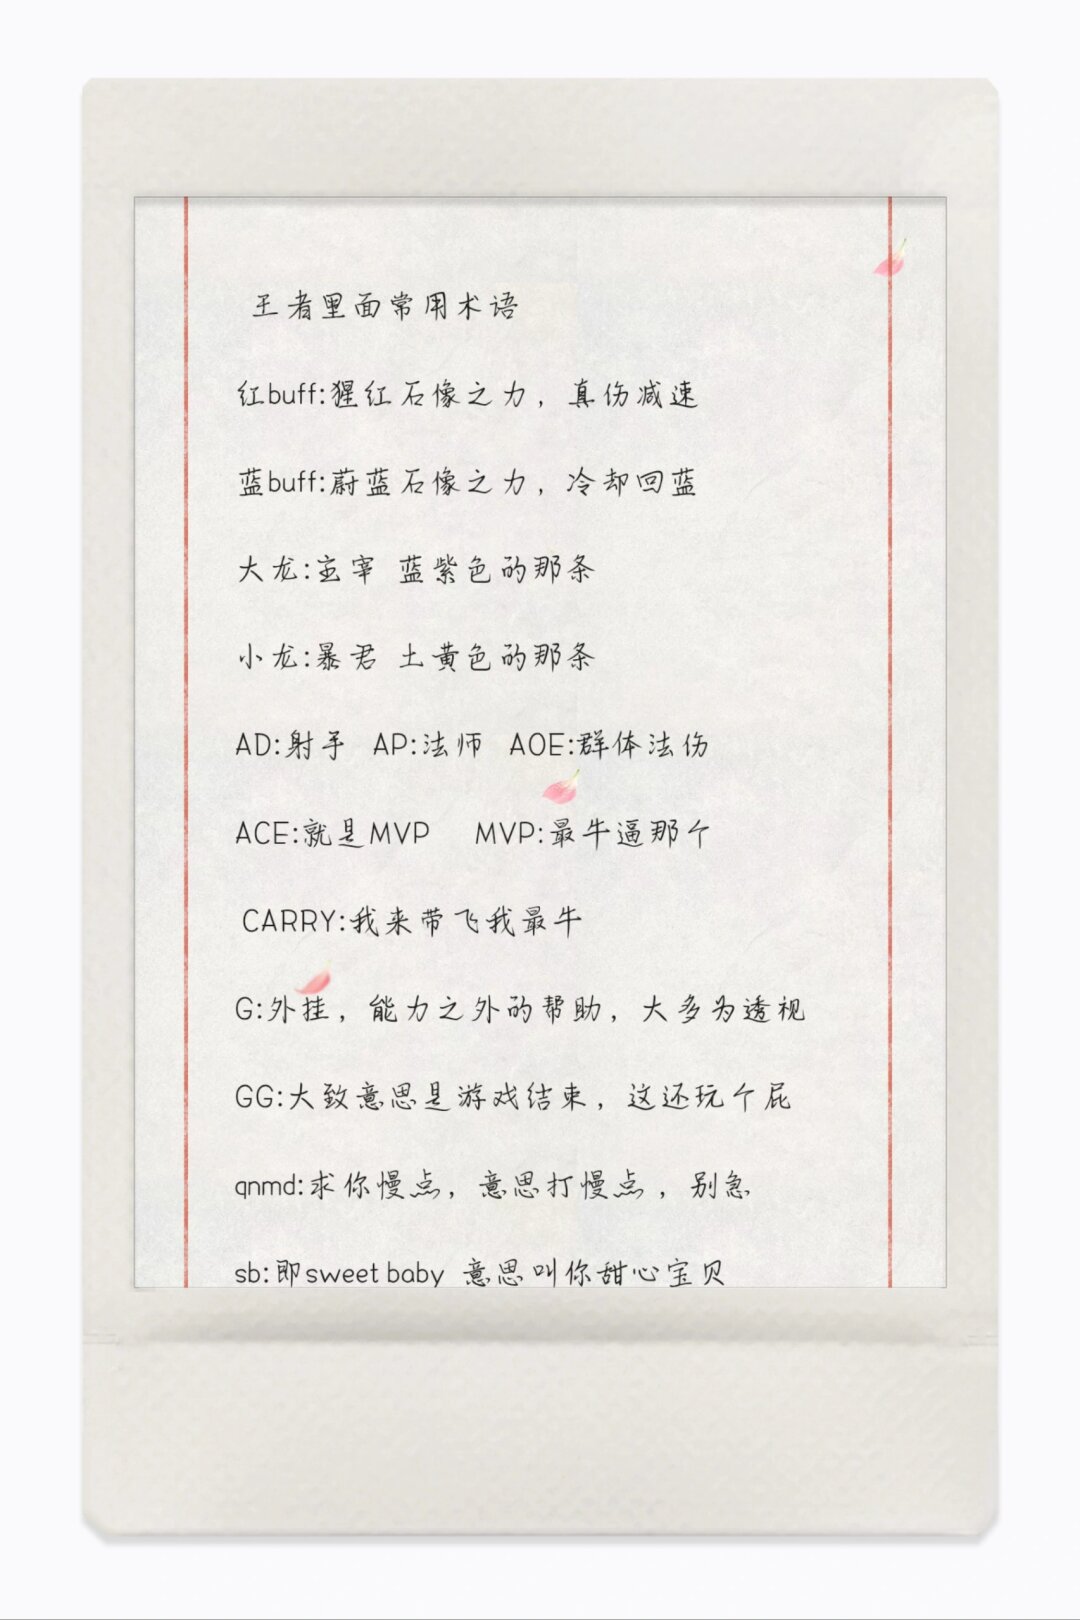 王者里面常用术语
红buff:猩红石像之力，真伤减速
蓝buff:蔚蓝石像之力，冷却回蓝
大龙:主宰 蓝紫色的那条
小龙:暴君 土黄色的那条
AD:射手 AP:法师 AOE:群体法伤
ACE:就是MVP MVP:最牛逼那个
CARRY:我来带飞我最牛
G:外挂，能力之外的帮助，大多为透视
GG:大致意思是游戏结束，这还玩个屁
qnmd:求你慢点，意思打慢点，别急
sb:即sweet baby 意思叫你甜心宝贝